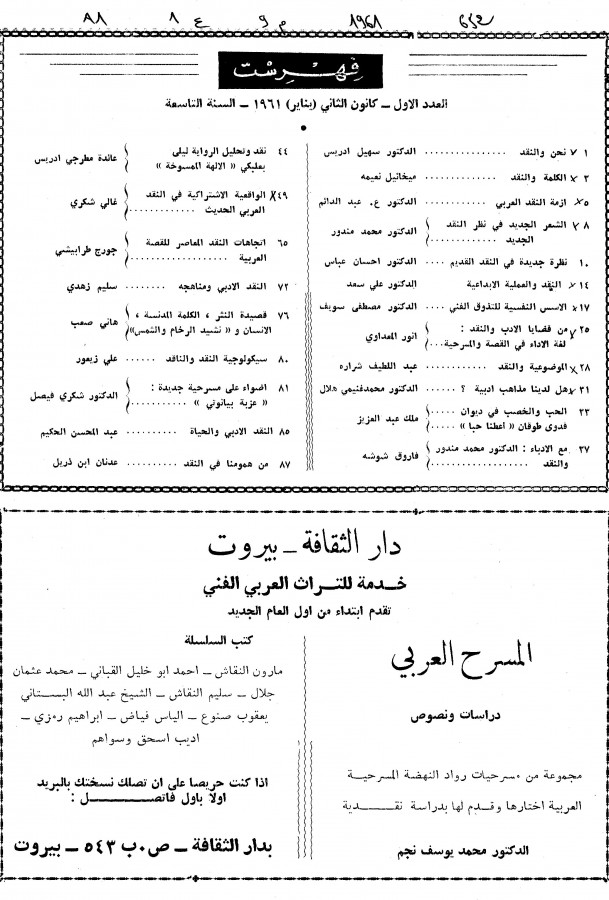 ٨١ ١ ع ٩ م 1961
فهرست
العدد الاول – كانون الثاني (يناير) ١٩٦١ – السنة التاسعة
١ نحن والنقد ................ الدكتور سهيل ادريس
٢ الكلمة والنقد ............ ميخائيل نعيمه
٥ ازمة النقد العربي ............ الدكتور ع. عبد الدائم
٨ الشعر الجديد في نظر النقد
الجديد ............ الدكتور محمد مندور
١٠ نظرة جديدة في النقد القديم .... الدكتور احسان عباس
١٤ النقد والعملية الابداعية الدكتور علي سعد
١٧ الاسس النفسية للتذوق الفني .... الدكتور مصطفى سويف
٢٥ من قضايا الادب والنقد :
لغة الاداء في القصة والمسرحية... انور المعداوي
٢٨ الموضوعية والنقد ............ عبد اللطيف شراره
٣١ هل لدينا مذاهب ادبية ؟ ...... الدكتور محمد غنيمي هلال
٣٣ الحب والخصب في ديوان
فدوى طوقان « اعطنا حبا » .... ملك عبد العزيز
٣٧ مع الادباء : الدكتور محمد مندور
والنقد ............ فاروق شوشه
٤٤ نقد وتحليل الرواية ليلى
بعلبكي « الالهة الممسوخة » عائدة مطرجي ادريس
٤٩ الواقعية الاشتراكية في النقد
العربي الحديث ............ غالي شكري
٦٥ اتجاهات النقد المعاصر للقصة
العربية .................. جورج طرابيشي
٧٢ النقد الادبي ومناهجه ........ سليم زهدي
٧٦ قصيدة النثر ، الكلمة المدنسة ،
الانسان و « نشيد الرخام والشمس» هاني صعب
٨٠ سيكولوجية النقد والناقد ...... علي زيعور
٨١ اضواء على مسرحية جديدة :
« عزبة بيانوتي » ........... الدكتور شكري فيصل
٨٥ النقد الادبي والحياة .......... عبد المحسن الحكيم
٨٧ من همومنا في النقد .......... عدنان ابن ذريل
دار الثقافة – بيروت
خدمة للتراث العربي الفني
تقدم ابتداء من اول العام الجديد
المسرح العربي
دراسات ونصوص
مجموعة من مسرحيات رواد النهضة المسرحية
العربية اختارها وقدم لها بدراسة نقدية
الدكتور محمد يوسف نجم
كتب السلسلة
مارون النقاش – احمد ابو خليل القباني – محمد عثمان
جلال – سليم النقاش – الشيخ عبد الله البستاني
يعقوب صنوع – الياس فياض – ابراهيم رمزي –
اديب اسحق وسواهم
اذا كنت حريصا على ان تصلك نسختك بالبريد
اولا باول فاتصل :
بدار الثقافة – ص.ب ٥٤٣ – بيروت